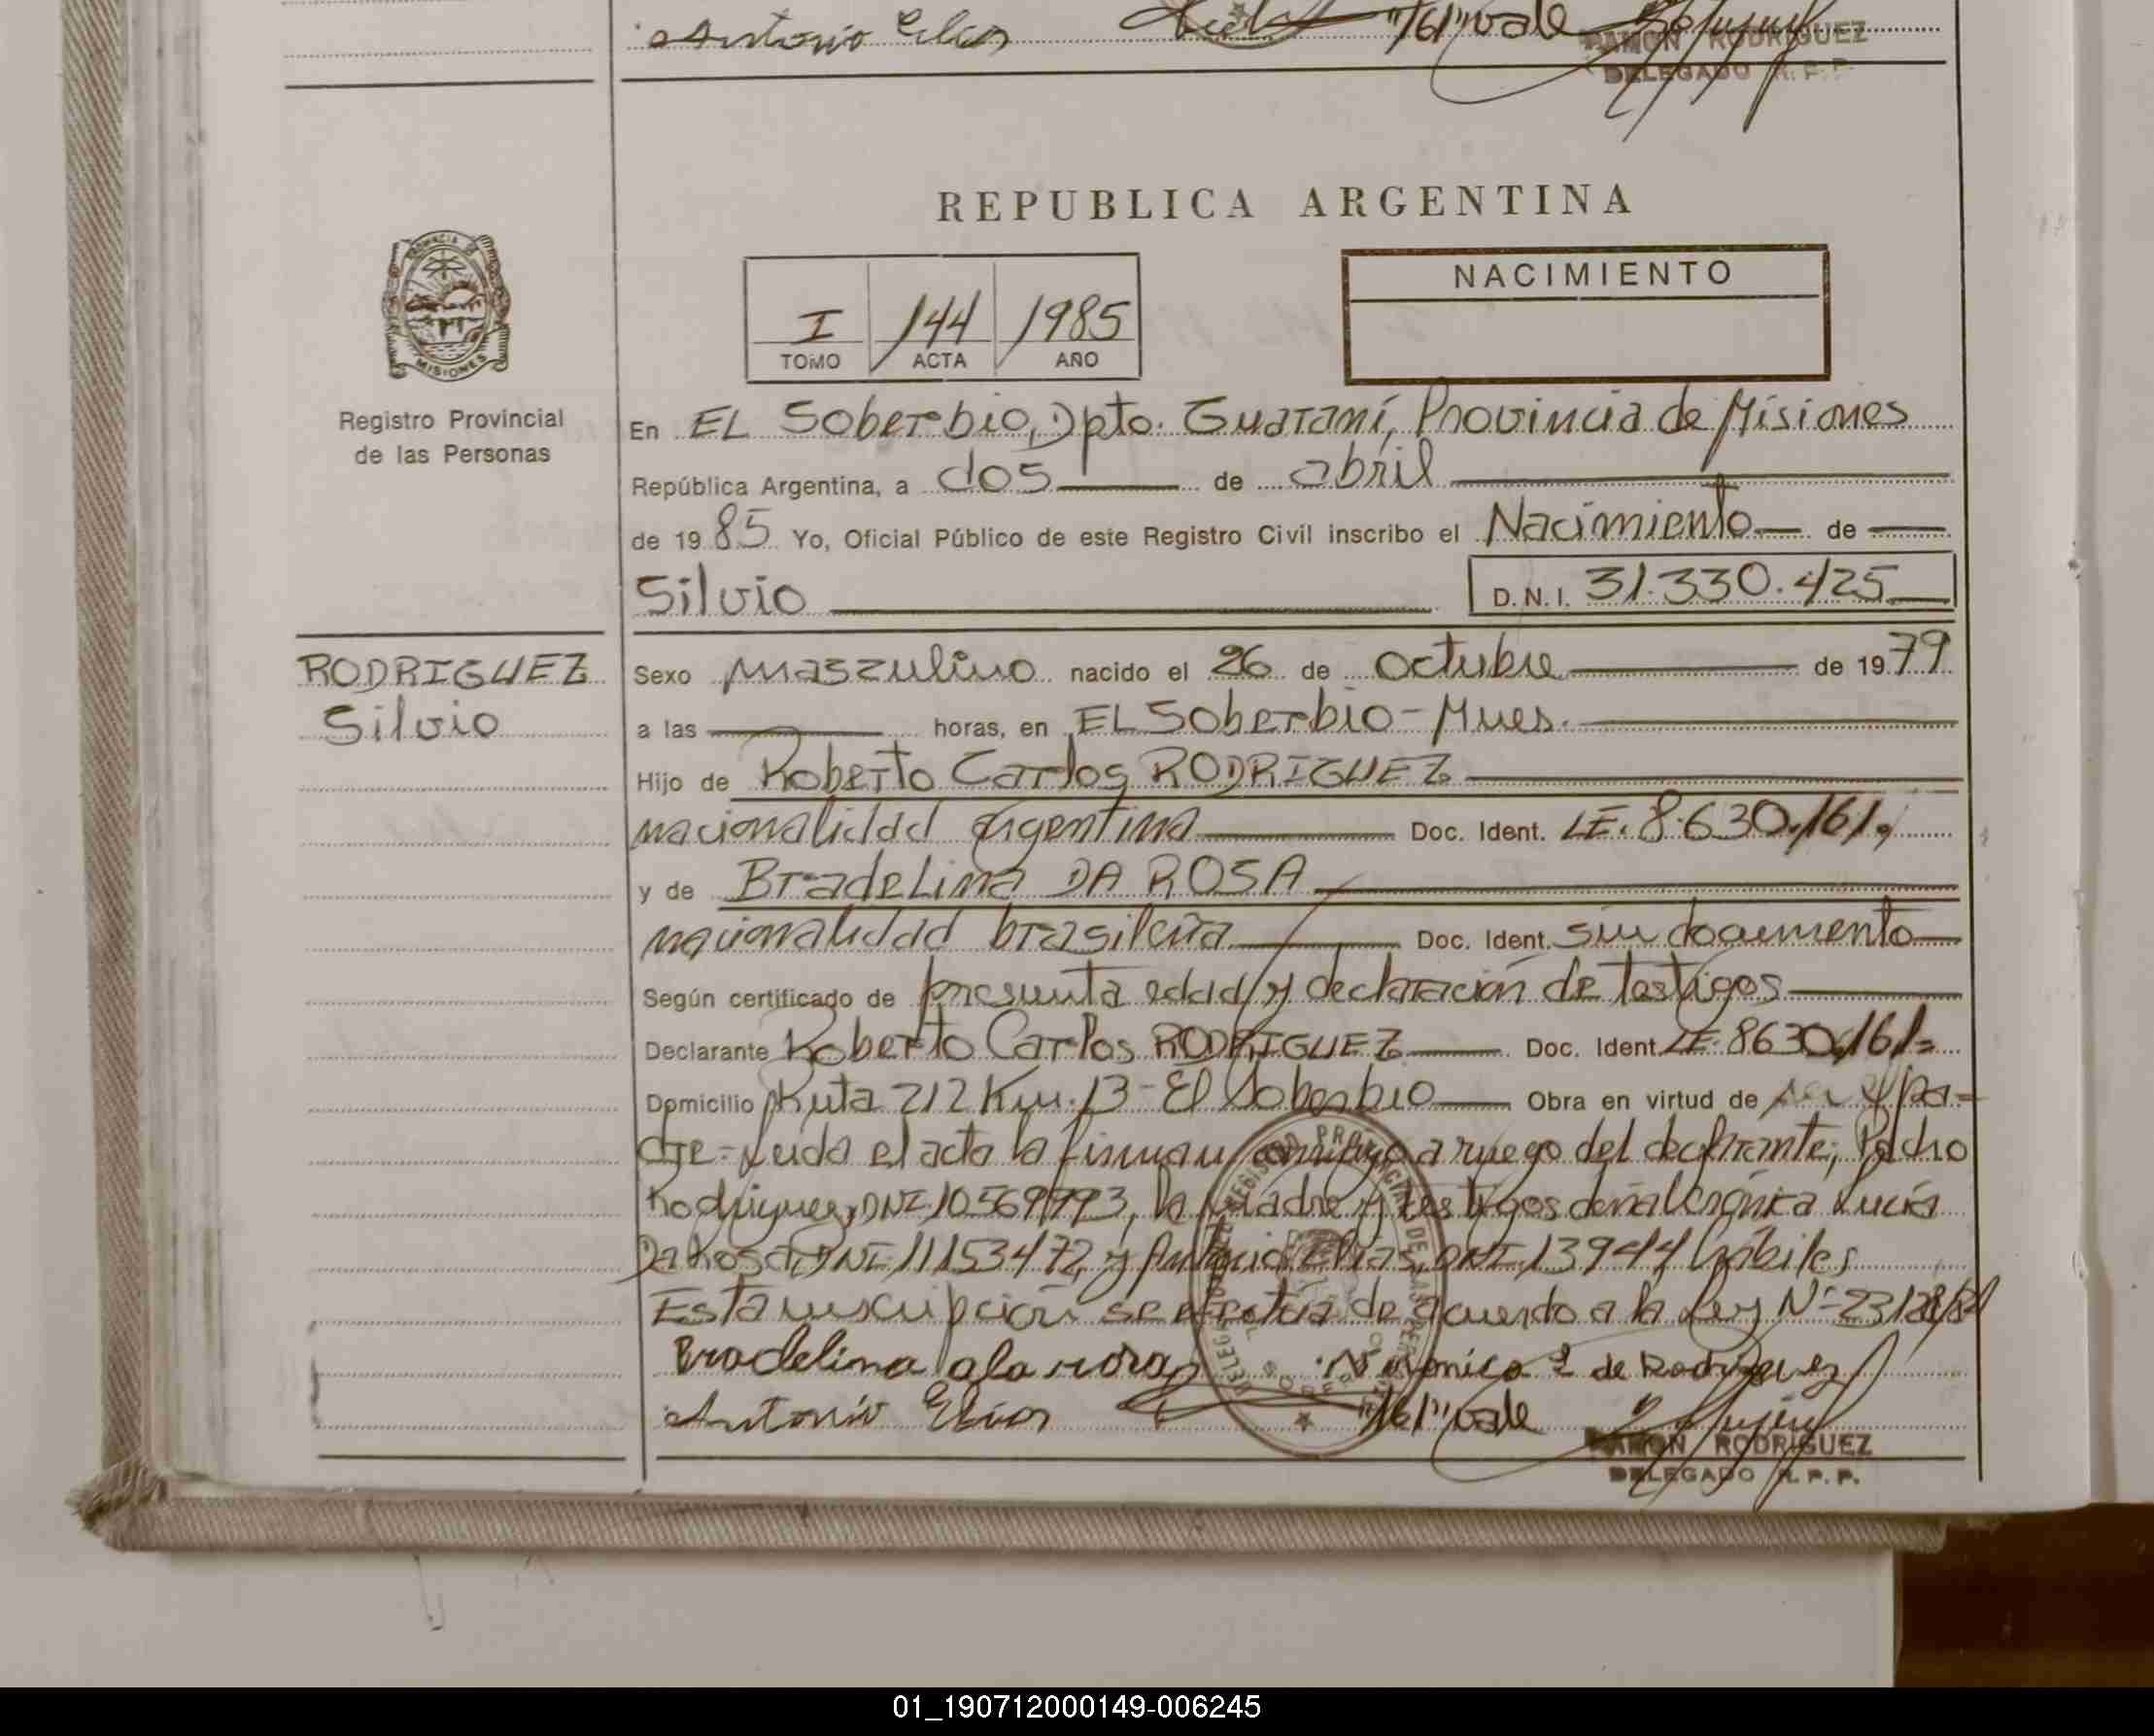 Antonio Elias "161" vale
RAMON RODRIGUEZ
DELEGADO R. P. P.
REPUBLICA ARGENTINA
PROVINCIA DE MISIONES
I 144 1985
TOMO ACTA AÑO
NACIMIENTO
Registro Provincial
de las Personas
En EL Soberbio, Dpto. Guaraní, Provincia de Misiones
República Argentina, a dos de abril
de 19 85 Yo, Oficial Público de este Registro Civil inscribo el Nacimiento de
Silvio D.N.I. 31.330.425
RODRIGUEZ
Silvio
Sexo masculino nacido el 26 de octubre de 19 79
a las horas, en EL Soberbio - Mnes.
Hijo de Roberto Carlos RODRIGUEZ
nacionalidad argentina Doc. Ident. LE. 8.630.161,
y de Bradelima DA ROSA
nacionalidad brasileña Doc. Ident. sin documento
Según certificado de presunta edad y declaración de testigos
Declarante Roberto Carlos RODRIGUEZ Doc. Ident LE. 8630.161=
Domicilio Ruta 212 Km. 13 - El Soberbio Obra en virtud de ser el pa=
dre - Leida el acta la firman conmigo a ruego del declarante, Pedro
Rodriguez, DNI 10569993, la madre y testigos doña Verónica Lucía
Da Rosa, DNI 11153472, y Antonio Elias, DNI 13944 hábiles
Esta inscripción se efectúa de acuerdo a la Ley Nº 23128/84
Bradelima da rosa Veronica L de Rodriguez
Antonio Elias "161" vale
RAMON RODRIGUEZ
DELEGADO R. P. P.
01_190712000149-006245